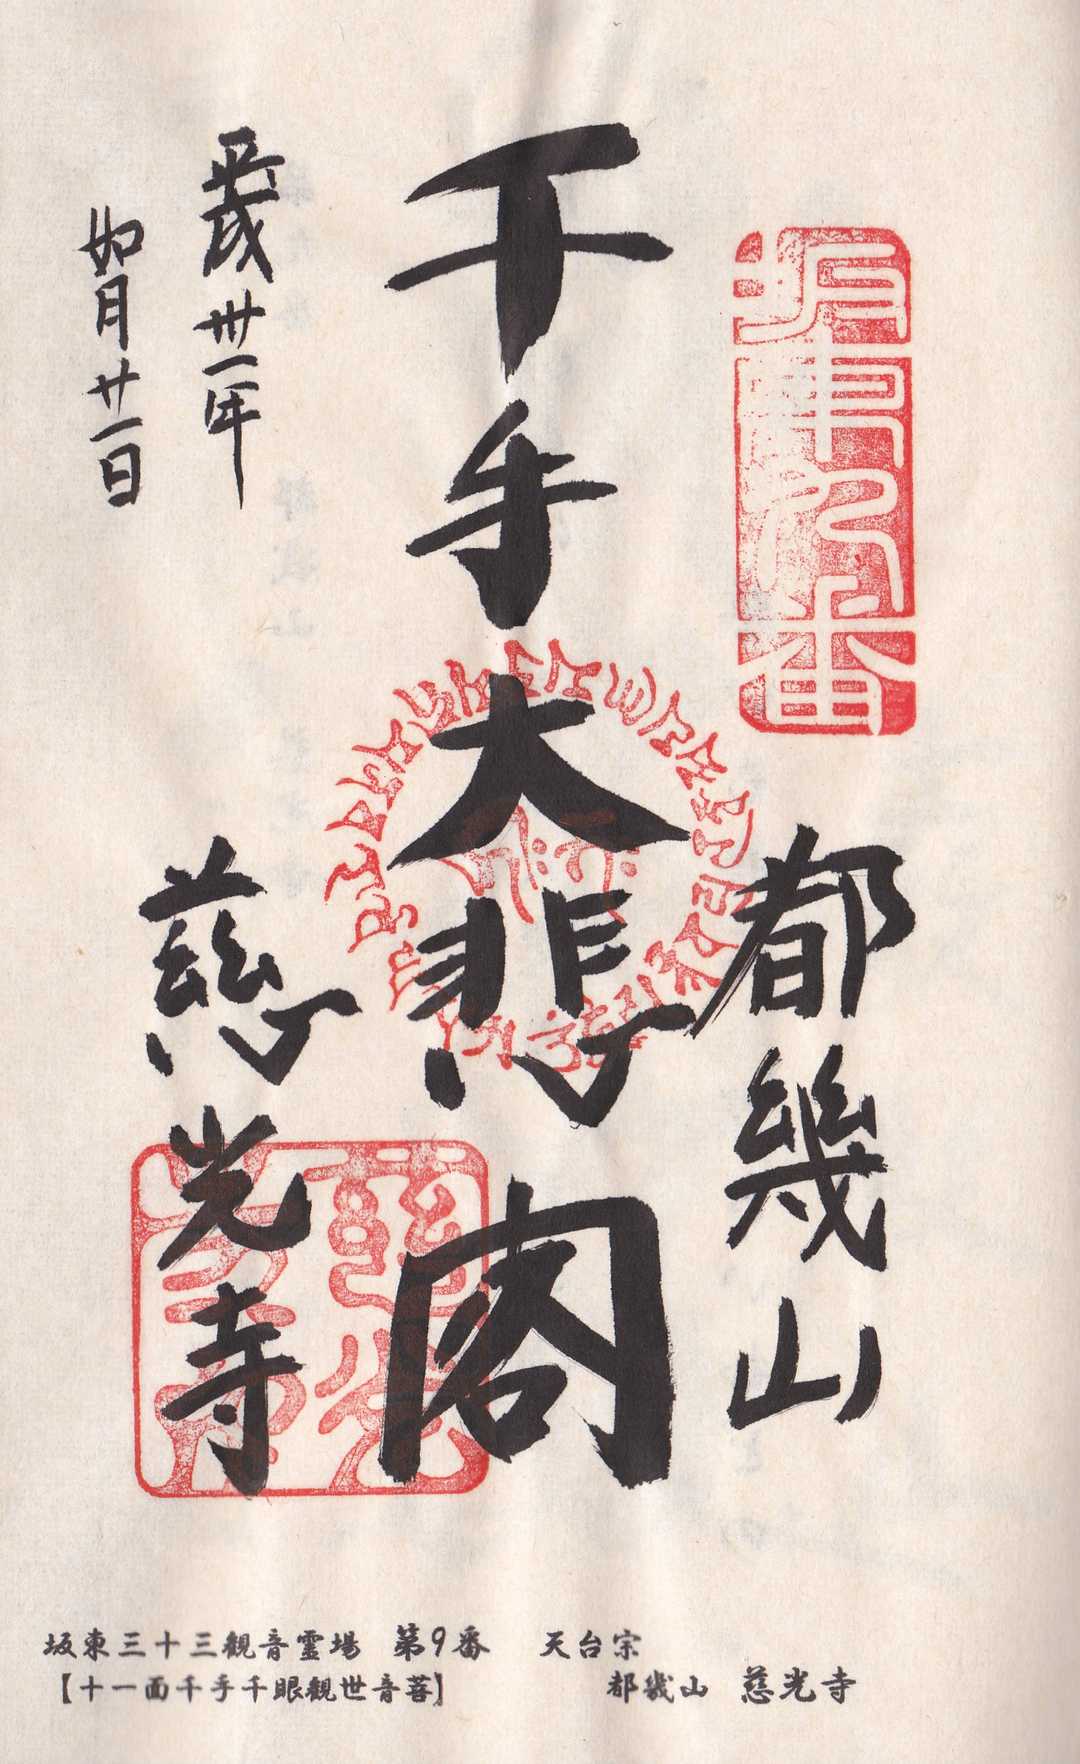 坂東九番
都幾山
千手大悲閣
慈光寺
平成卅一年
如月廿一日
慈光寺印
坂東三十三観音霊場 第9番 天台宗
【十一面千手千眼観世音菩】 都幾山 慈光寺